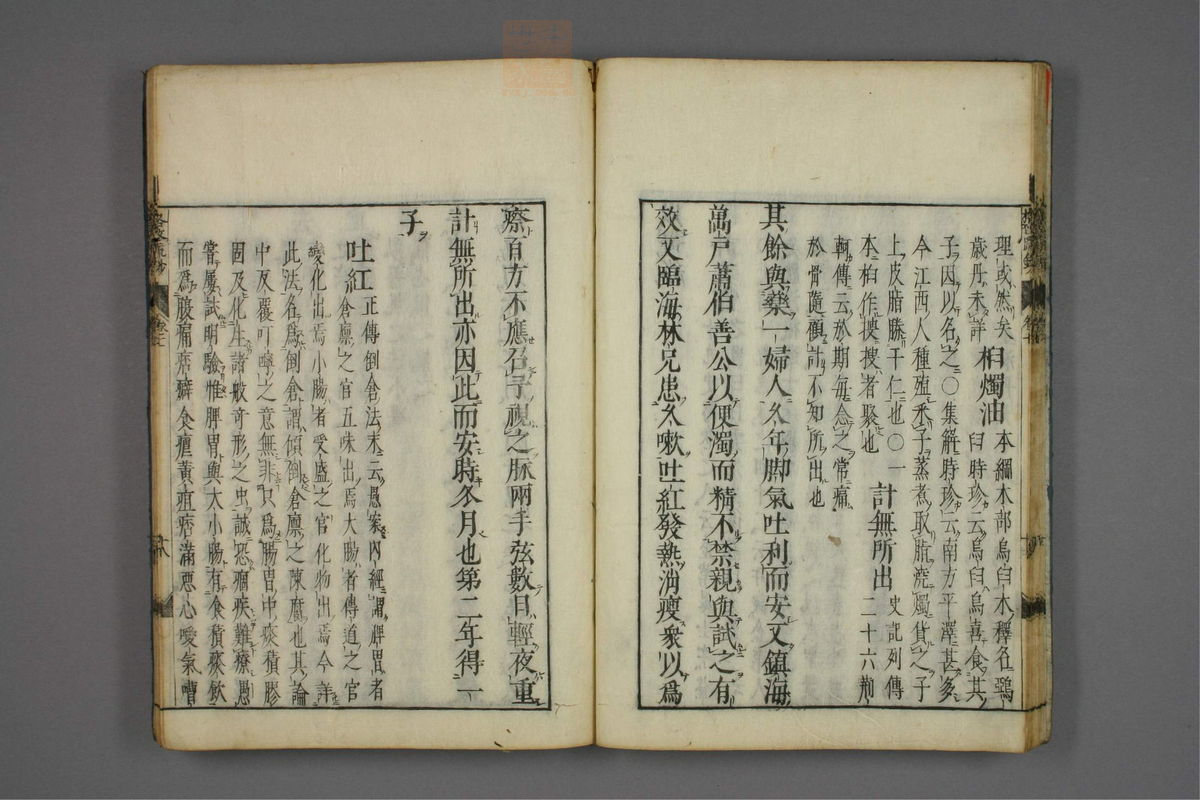 理或然矣
歳丹未詳 桕燭油 本綱木部烏臼木釋名鵶
臼時珍云烏臼烏喜食其
子因以名之〇集解時珍云南方平澤甚多
今江西人種殖采子蒸煮取脂澆燭貨之子
上皮脂勝于仁也〇一
本桕作搜搜者聚也 計無所出 史記列傳
二十六荊
軻傳云於期毎念之常痛
於骨隨顧計不知所出也
其餘與藥一婦人久年脚氣吐利而安又鎮海
萬戸蕭伯善公以便濁而精不禁親與試之有
效又臨海林兄患久嗽吐紅發熱消瘦衆以爲
瘵百方不應召予視之脉兩手弦數日輕夜重
計無所出亦因此而安時冬月也第二年得一
子
吐紅 正傳倒倉法末云愚案内經謂脾胃者
倉廪之官五味出焉大腸者傳道之官
變化出焉小腸者受盛之官化物出焉今詳
此法名爲倒倉謂傾倒倉廪之陳腐也其論
中反覆叮嚀之意無非只爲腸胃中痰積膠
固及化生諸般奇形之虫誠恐痼疾難療愚
嘗屢試明驗惟脾胃與大小腸有食積痰飲
而爲腹痛痞癖食瘧黄疸痞滿惡心噯氣嘈